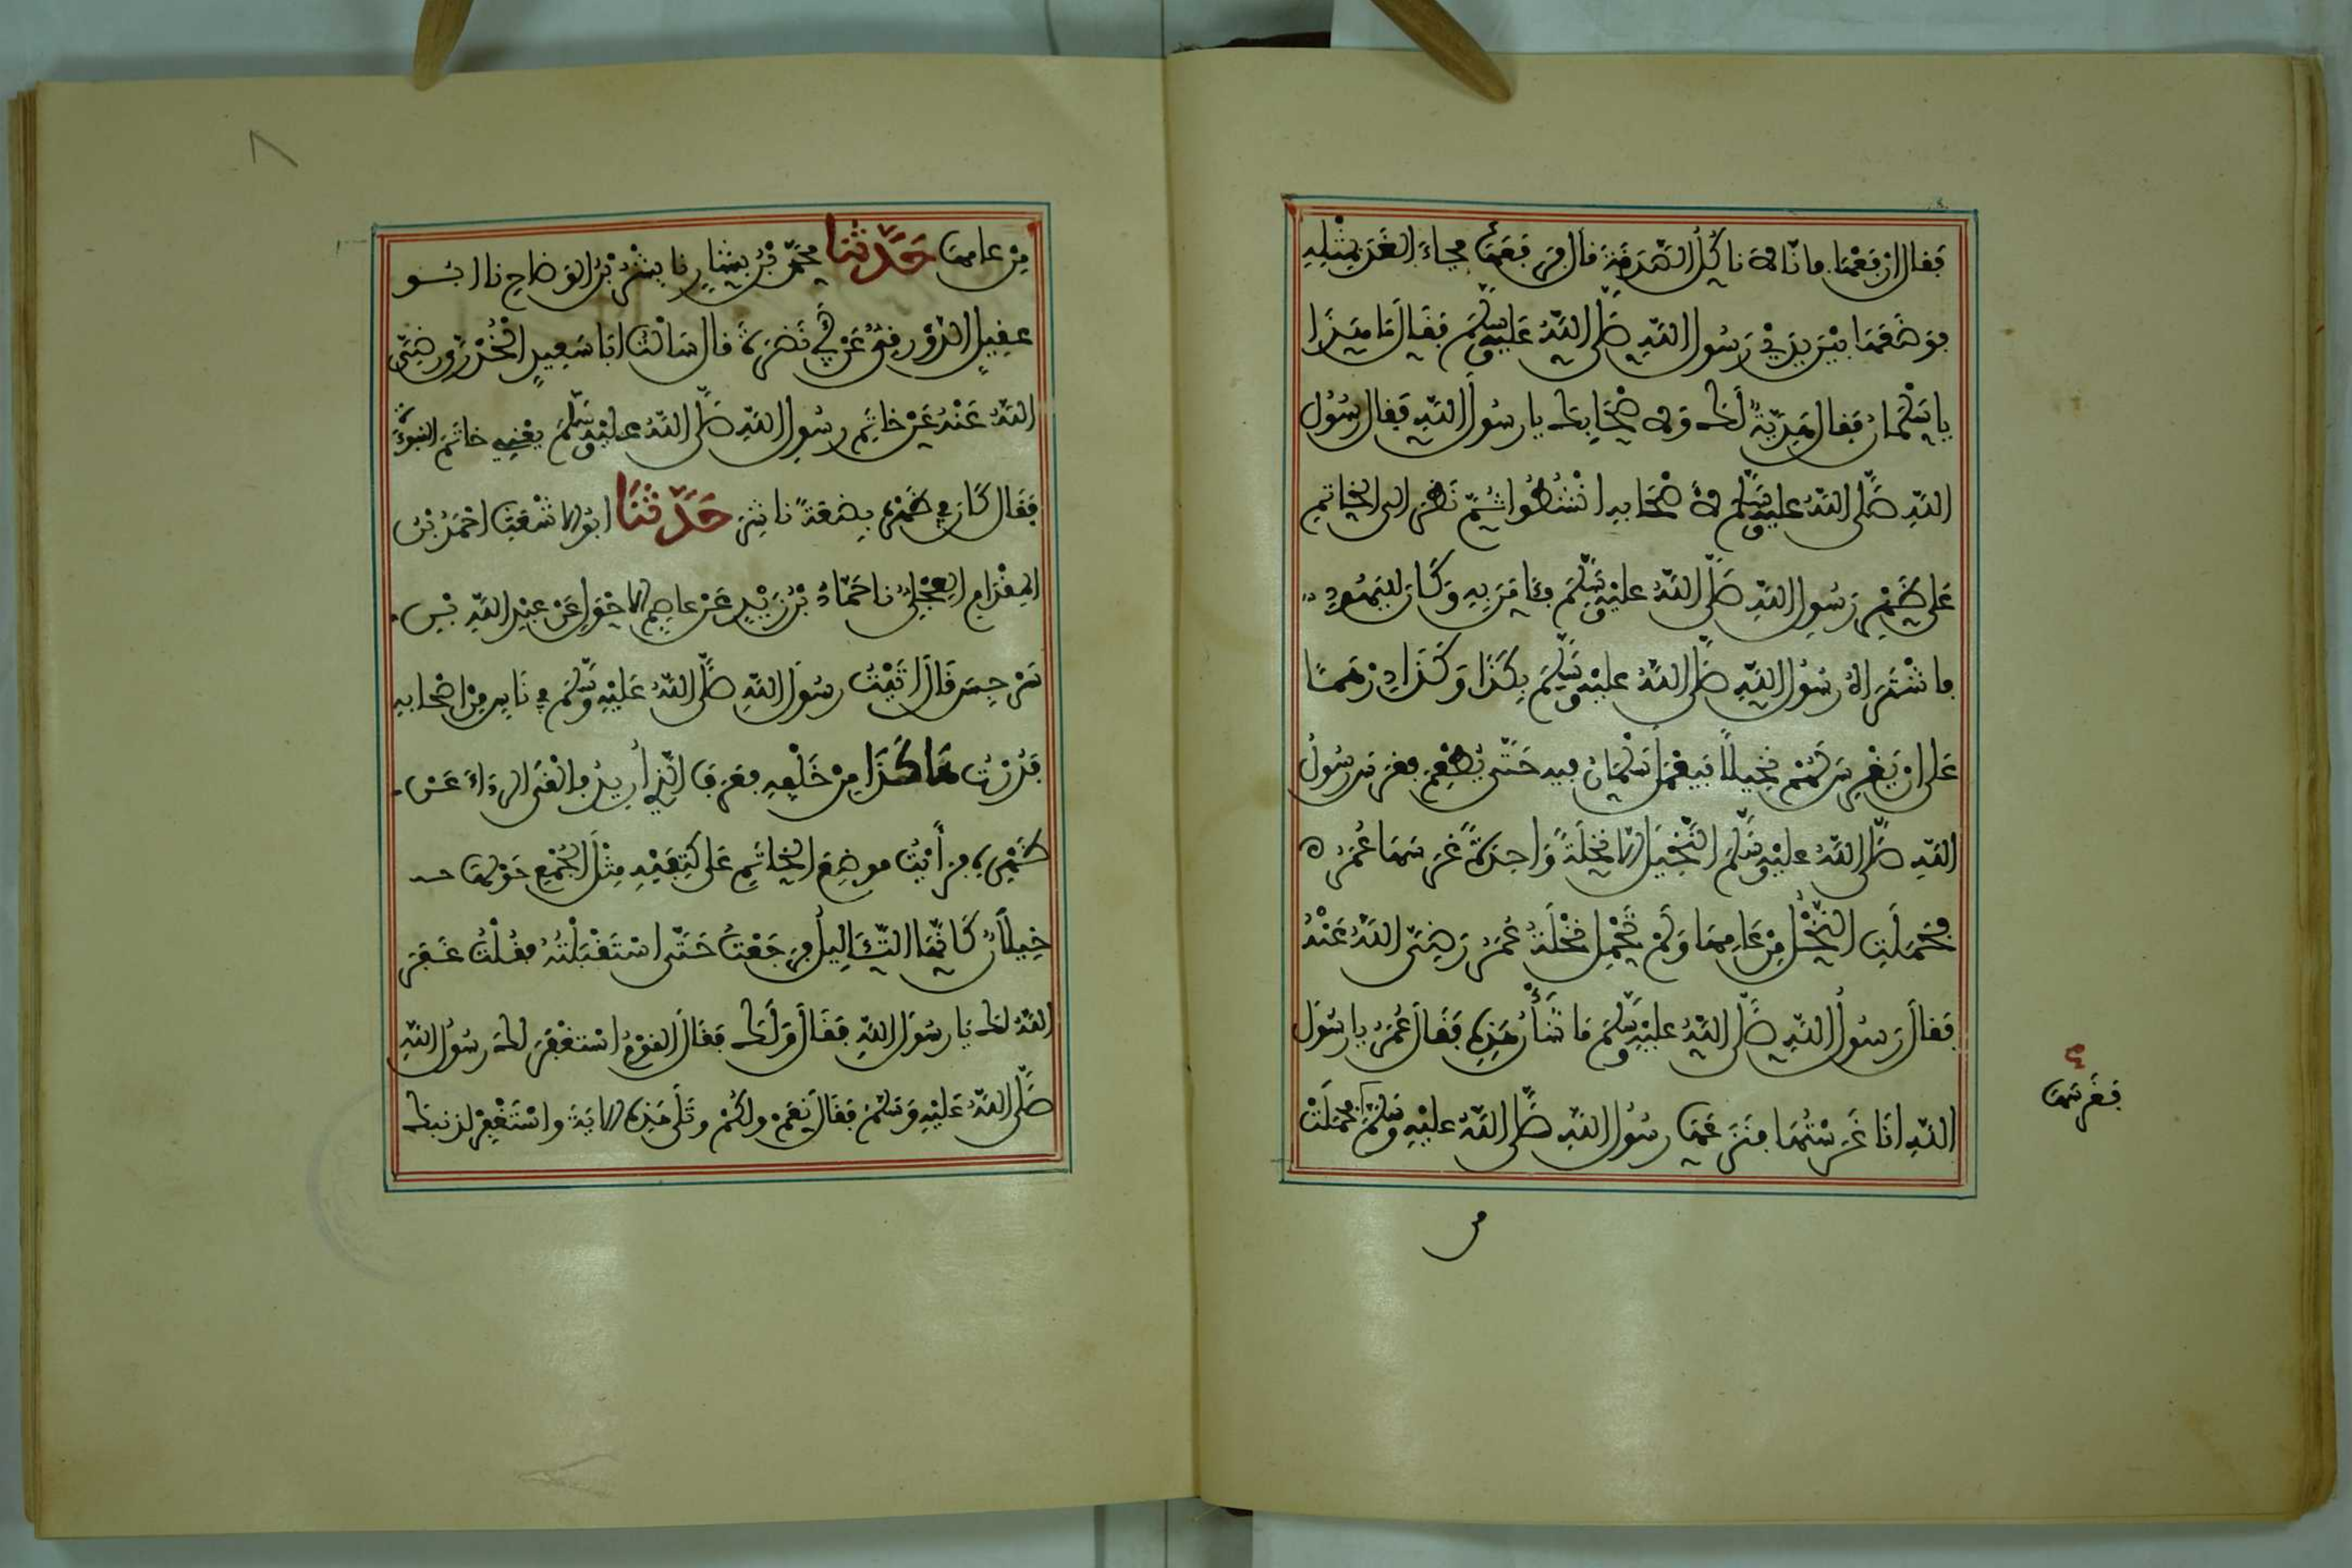 فقال ارفعها فانا لا ناكل الصدقة قال فرفعها فجاء الغد بمثله
فوضعها بين يدي رسول الله صلى الله عليه وسلم فقال ما هذا
يا سلمان فقال هدية لك ولاصحابك يا رسول الله فقال رسول
الله صلى الله عليه وسلم لاصحابه انشطوا ثم نظر الى الخاتم
على ظهر رسول الله صلى الله عليه وسلم فئامن به وكان لليهود
فاشتراه رسول الله صلى الله عليه وسلم بكذا وكذا درهما
على ان يغرس لهم نخيلا فيعمل سلمان فيه حتى يطعم فغرس رسول
الله صلى الله عليه وسلم النخيل الا نخلة واحدة غرسها عمر
فحملت النخل من عامها ولم تحمل نخلة عمر رضي الله عنه
فقال رسول الله صلى الله عليه وسلم ما شأن هذه فقال عمر يا رسول
الله انا غرستها فنزعها رسول الله صلى الله عليه وسلم فحملت
فغرسها
من
٨
من عامها حدثنا محمد بن بشار نا بشر بن الوضاح نا ابو
عقيل الدورقي عن ابي نضرة قال سالت ابا سعيد الخدري رضي
الله عنه عن خاتم رسول الله صلى الله عليه وسلم يعني خاتم النبوءة
فقال كان في ظهره بضعة ناشزة حدثنا ابو الاشعث احمد بن
المقدام العجلي نا حماد بن زيد عن عاصم الاحول عن عبد الله بن
سرجس قال اتيت رسول الله صلى الله عليه وسلم في ناس من اصحابه
فدرت هاكذا من خلفه فعرف الذي اريد فالقى الرداء عن
ظهره فرأيت موضع الخاتم على كتفيه مثل الجمع حولها
خيلان كانها الثئاليل فرجعت حتى استقبلته فقلت غفر
الله لك يا رسول الله فقال ولك فقال القوم استغفر لك رسول الله
صلى الله عليه وسلم فقال نعم ولكم وتلى هذه الاية واستغفر لذنبك